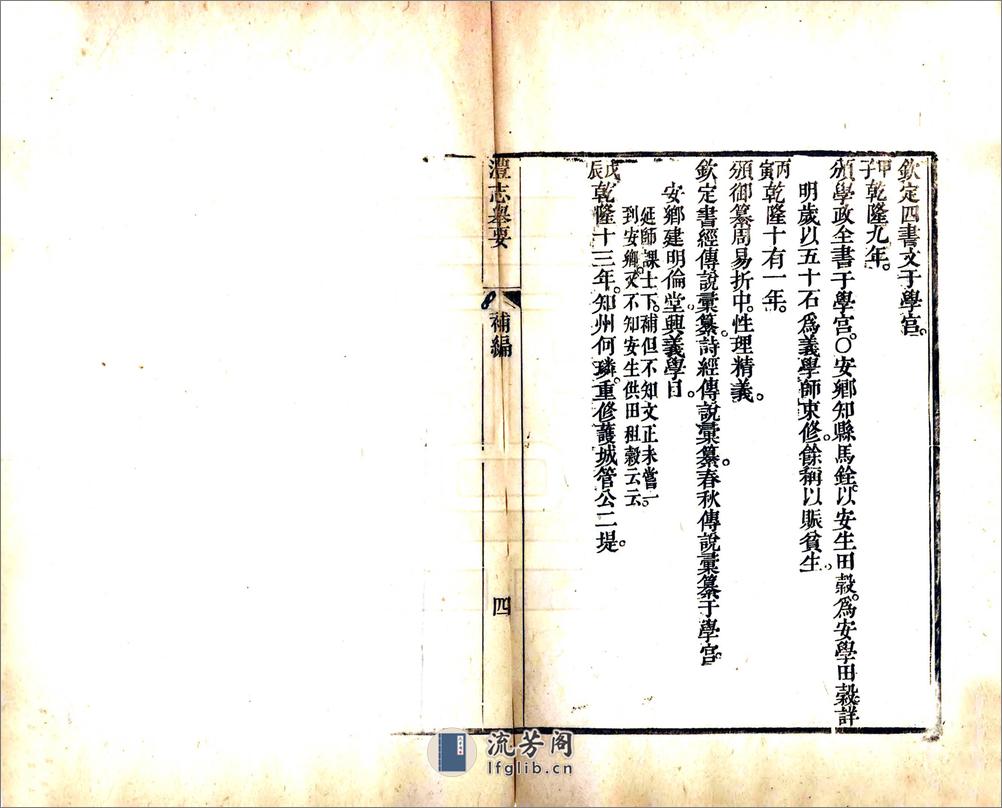 欽定四書文于學宮。
甲子乾隆九年。
頒學政全書于學宮。〇安鄉知縣馬銓。以安生田穀。爲安學田穀詳
明歲以五十石爲義學師束修。餘稱以賑貧生。
丙寅乾隆十有一年。
頒御纂周易折中。性理精義。
欽定書經傳說彙纂。詩經傳說彙纂。春秋傳說彙纂于學宮。
安鄉建明倫堂。興義學。目
延師課士下。補但不知文正未嘗一
到安鄉。又不知安生供田租穀云云。
戊辰乾隆十三年。知州何璘。重修護城管公二堤。
澧志舉要
補編
四
流芳阁
lfglib.cn